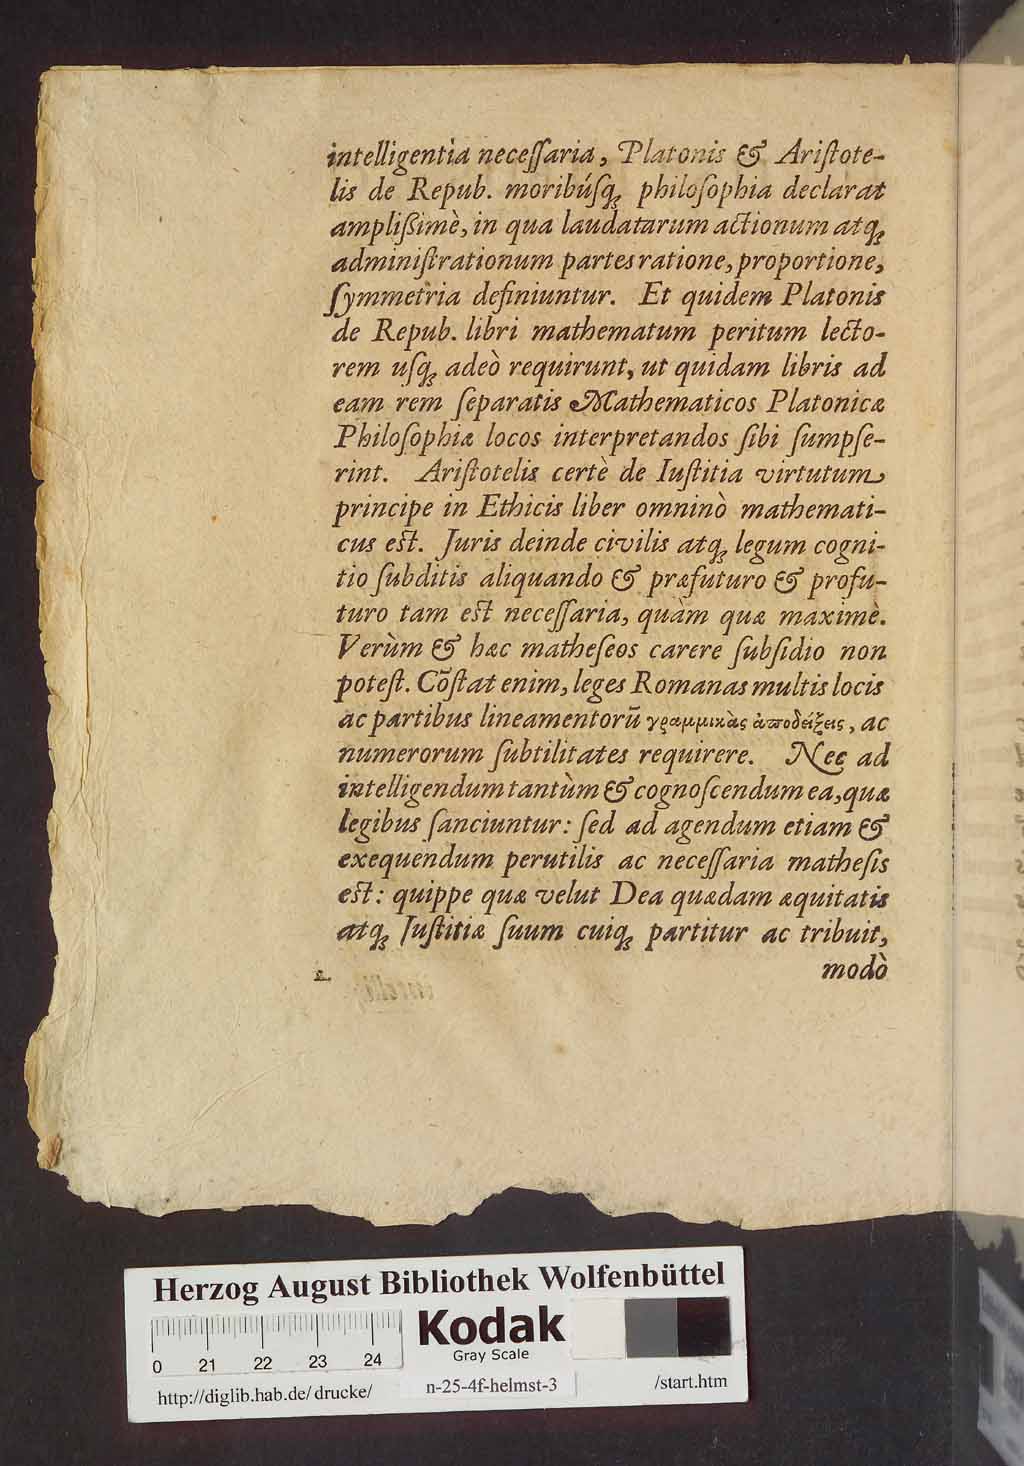 intelligentia neceſſaria, Platonis & Ariſtote-
lis de Repub. moribúſq; philoſophia declarat
ampliſſimè, in qua laudatarum actionum atq;
adminiſtrationum partes ratione, proportione,
ſymmetria definiuntur. Et quidem Platonis
de Repub. libri mathematum peritum lecto-
rem uſq; adeò requirunt, ut quidam libris ad
eam rem ſeparatis Mathematicos Platonicæ
Philoſophiæ locos interpretandos ſibi ſumpſe-
rint. Ariſtotelis certè de Iuſtitia virtutum
principe in Ethicis liber omninò mathemati-
cus eſt. Juris deinde civilis atq; legum cogni-
tio ſubditis aliquando & præfuturo & profu-
turo tam eſt neceſſaria, quàm quæ maximè.
Verùm & hæc matheſeos carere ſubſidio non
poteſt. Cõſtat enim, leges Romanas multis locis
ac partibus lineamentorũ γραμμικὰς ἀποδείξεις, ac
numerorum ſubtilitates requirere. Nec ad
intelligendum tantùm & cognoſcendum ea, quæ
legibus ſanciuntur: ſed ad agendum etiam &
exequendum perutilis ac neceſſaria matheſis
eſt: quippe quæ velut Dea quædam æquitatis
atq; Juſtitiæ ſuum cuiq; partitur ac tribuit,
modò
Herzog August Bibliothek Wolfenbüttel
Kodak
Gray Scale
0 21 22 23 24
http://diglib.hab.de/drucke/ n-25-4f-helmst-3 /start.htm